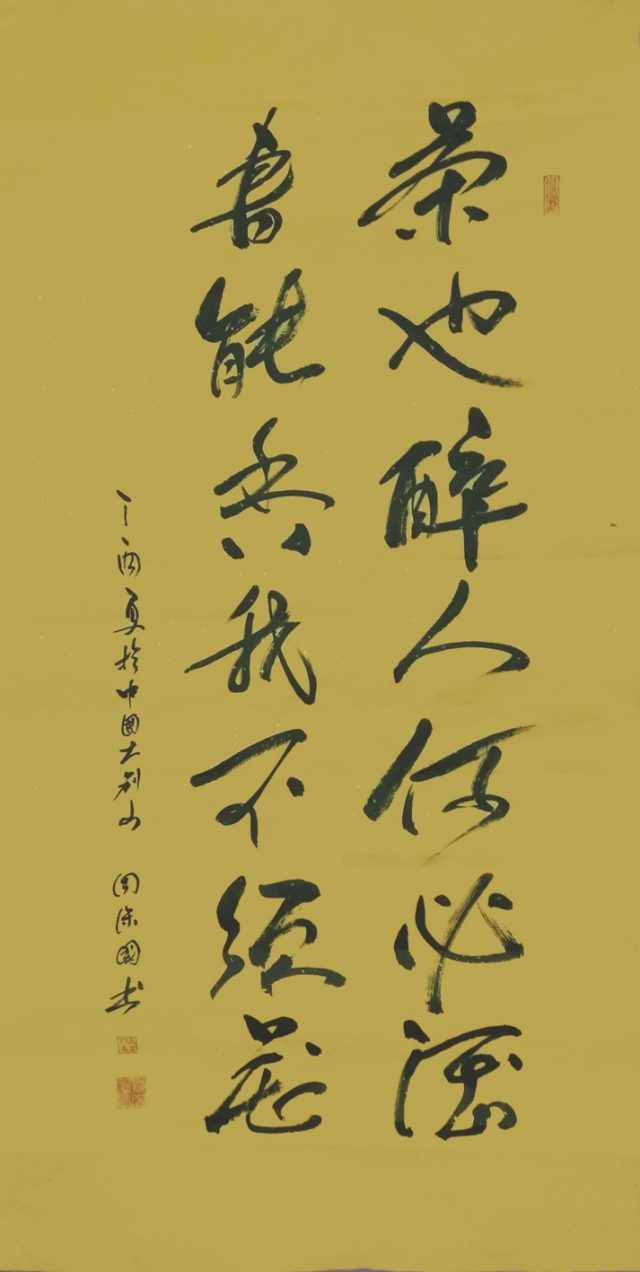 茶也醉人何必酒
书能香我不须花
丁酉夏於中國大别山 国 书